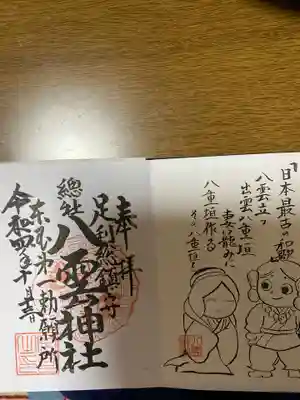 「日本最古の和歌
八雲立つ
出雲八重垣
妻籠みに
八重垣作る
その八重垣を
奉拝
足利総鎮守
總社 八雲神社
東国第一勅願所
令和四年十一月